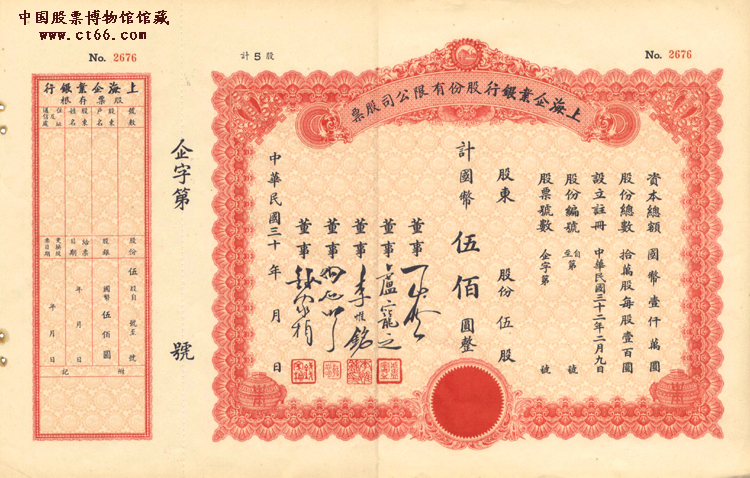 中国股票博物馆馆藏
www.ct66.com
No. 2676
計5股
No. 2676
上海企業銀行股份有限公司股票
資本總額 國幣壹仟萬圓
股份總數 拾萬股每股壹百圓
設立註冊 中華民國三十二年二月九日
股份編號 自至第 號
股票號數 企字第 號
股東 股份伍股
計國幣伍佰圓整
董事
董事 盧寵之
董事 李惟銘
董事
董事
中華民國三十年 月 日
企字第 號
上海企業銀行
股票存根
號數
股東戶名
股東姓名
住址及通信處
股份 伍股 自 號至 號
股銀 國幣伍佰圓
給票日期 年 月 日
更換股票日期 年 月 日
附記